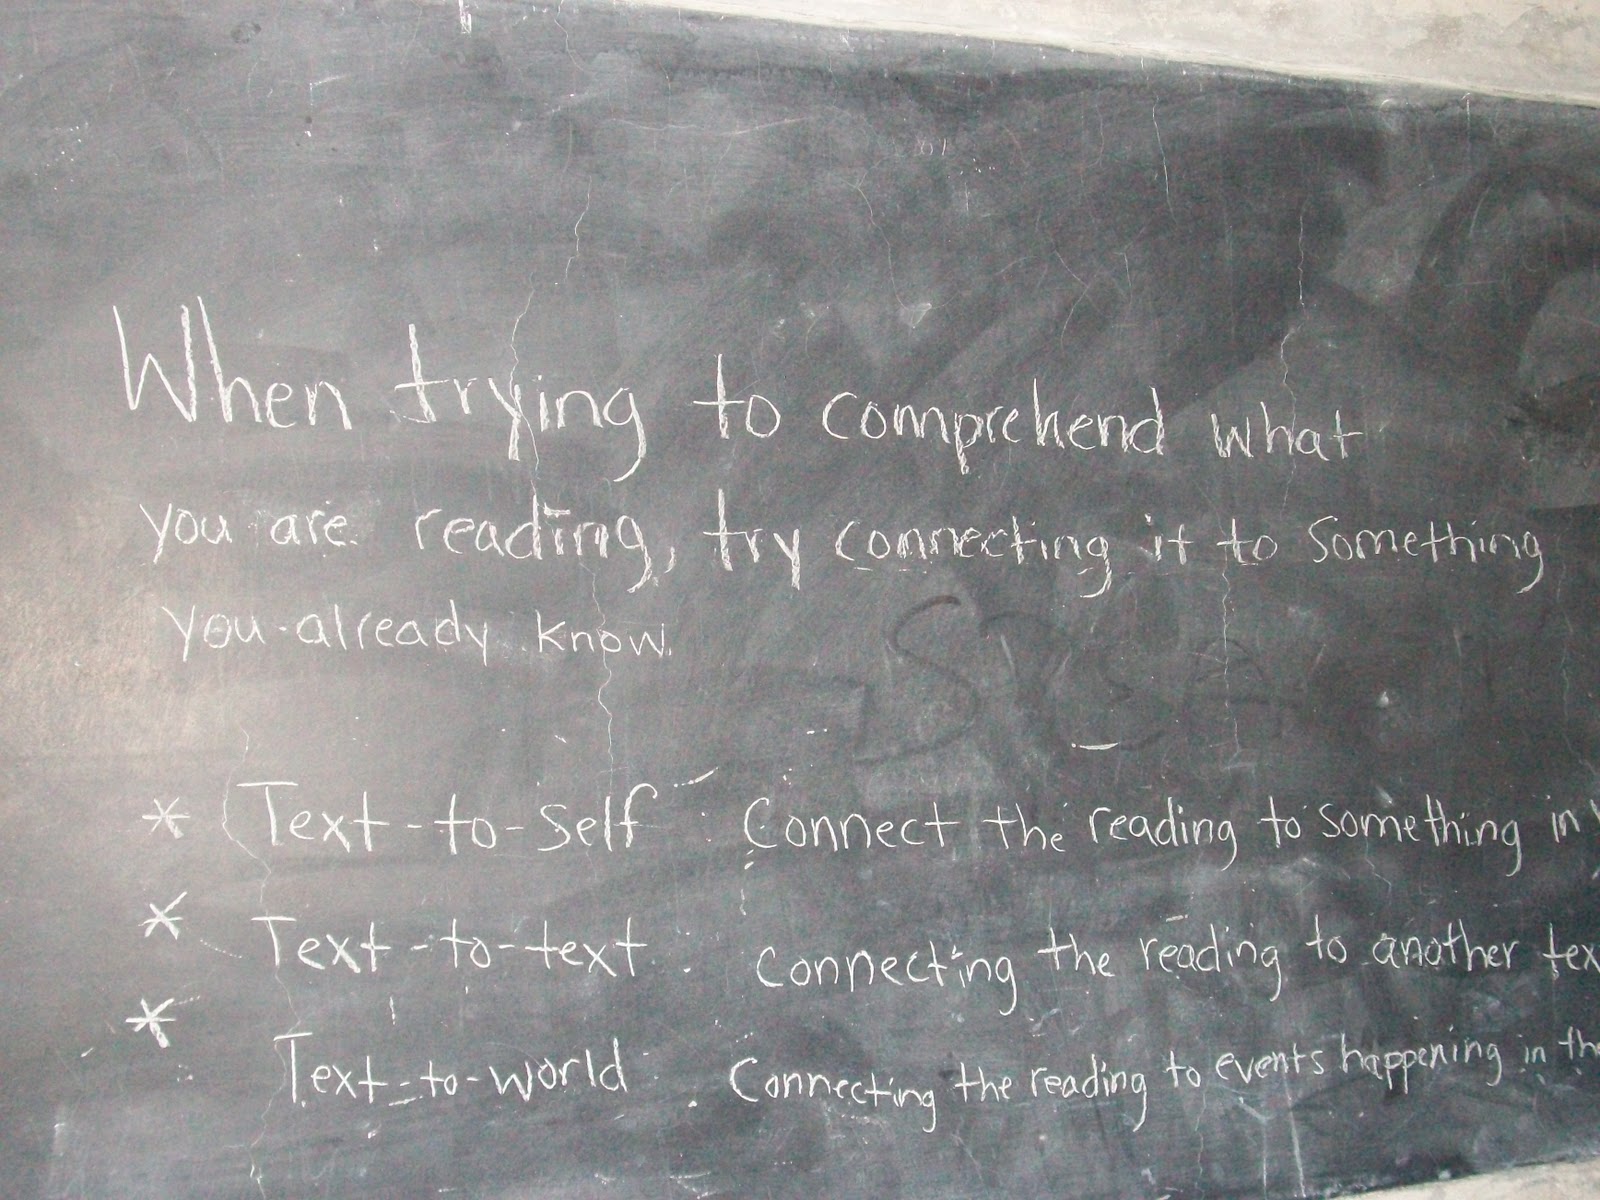 When trying to comprehend what
you are reading, try connecting it to something
you already know.
* Text-to-self : Connect the reading to something in
* Text-to-text : Connecting the reading to another
* Text-to-world : Connecting the reading to events happening in